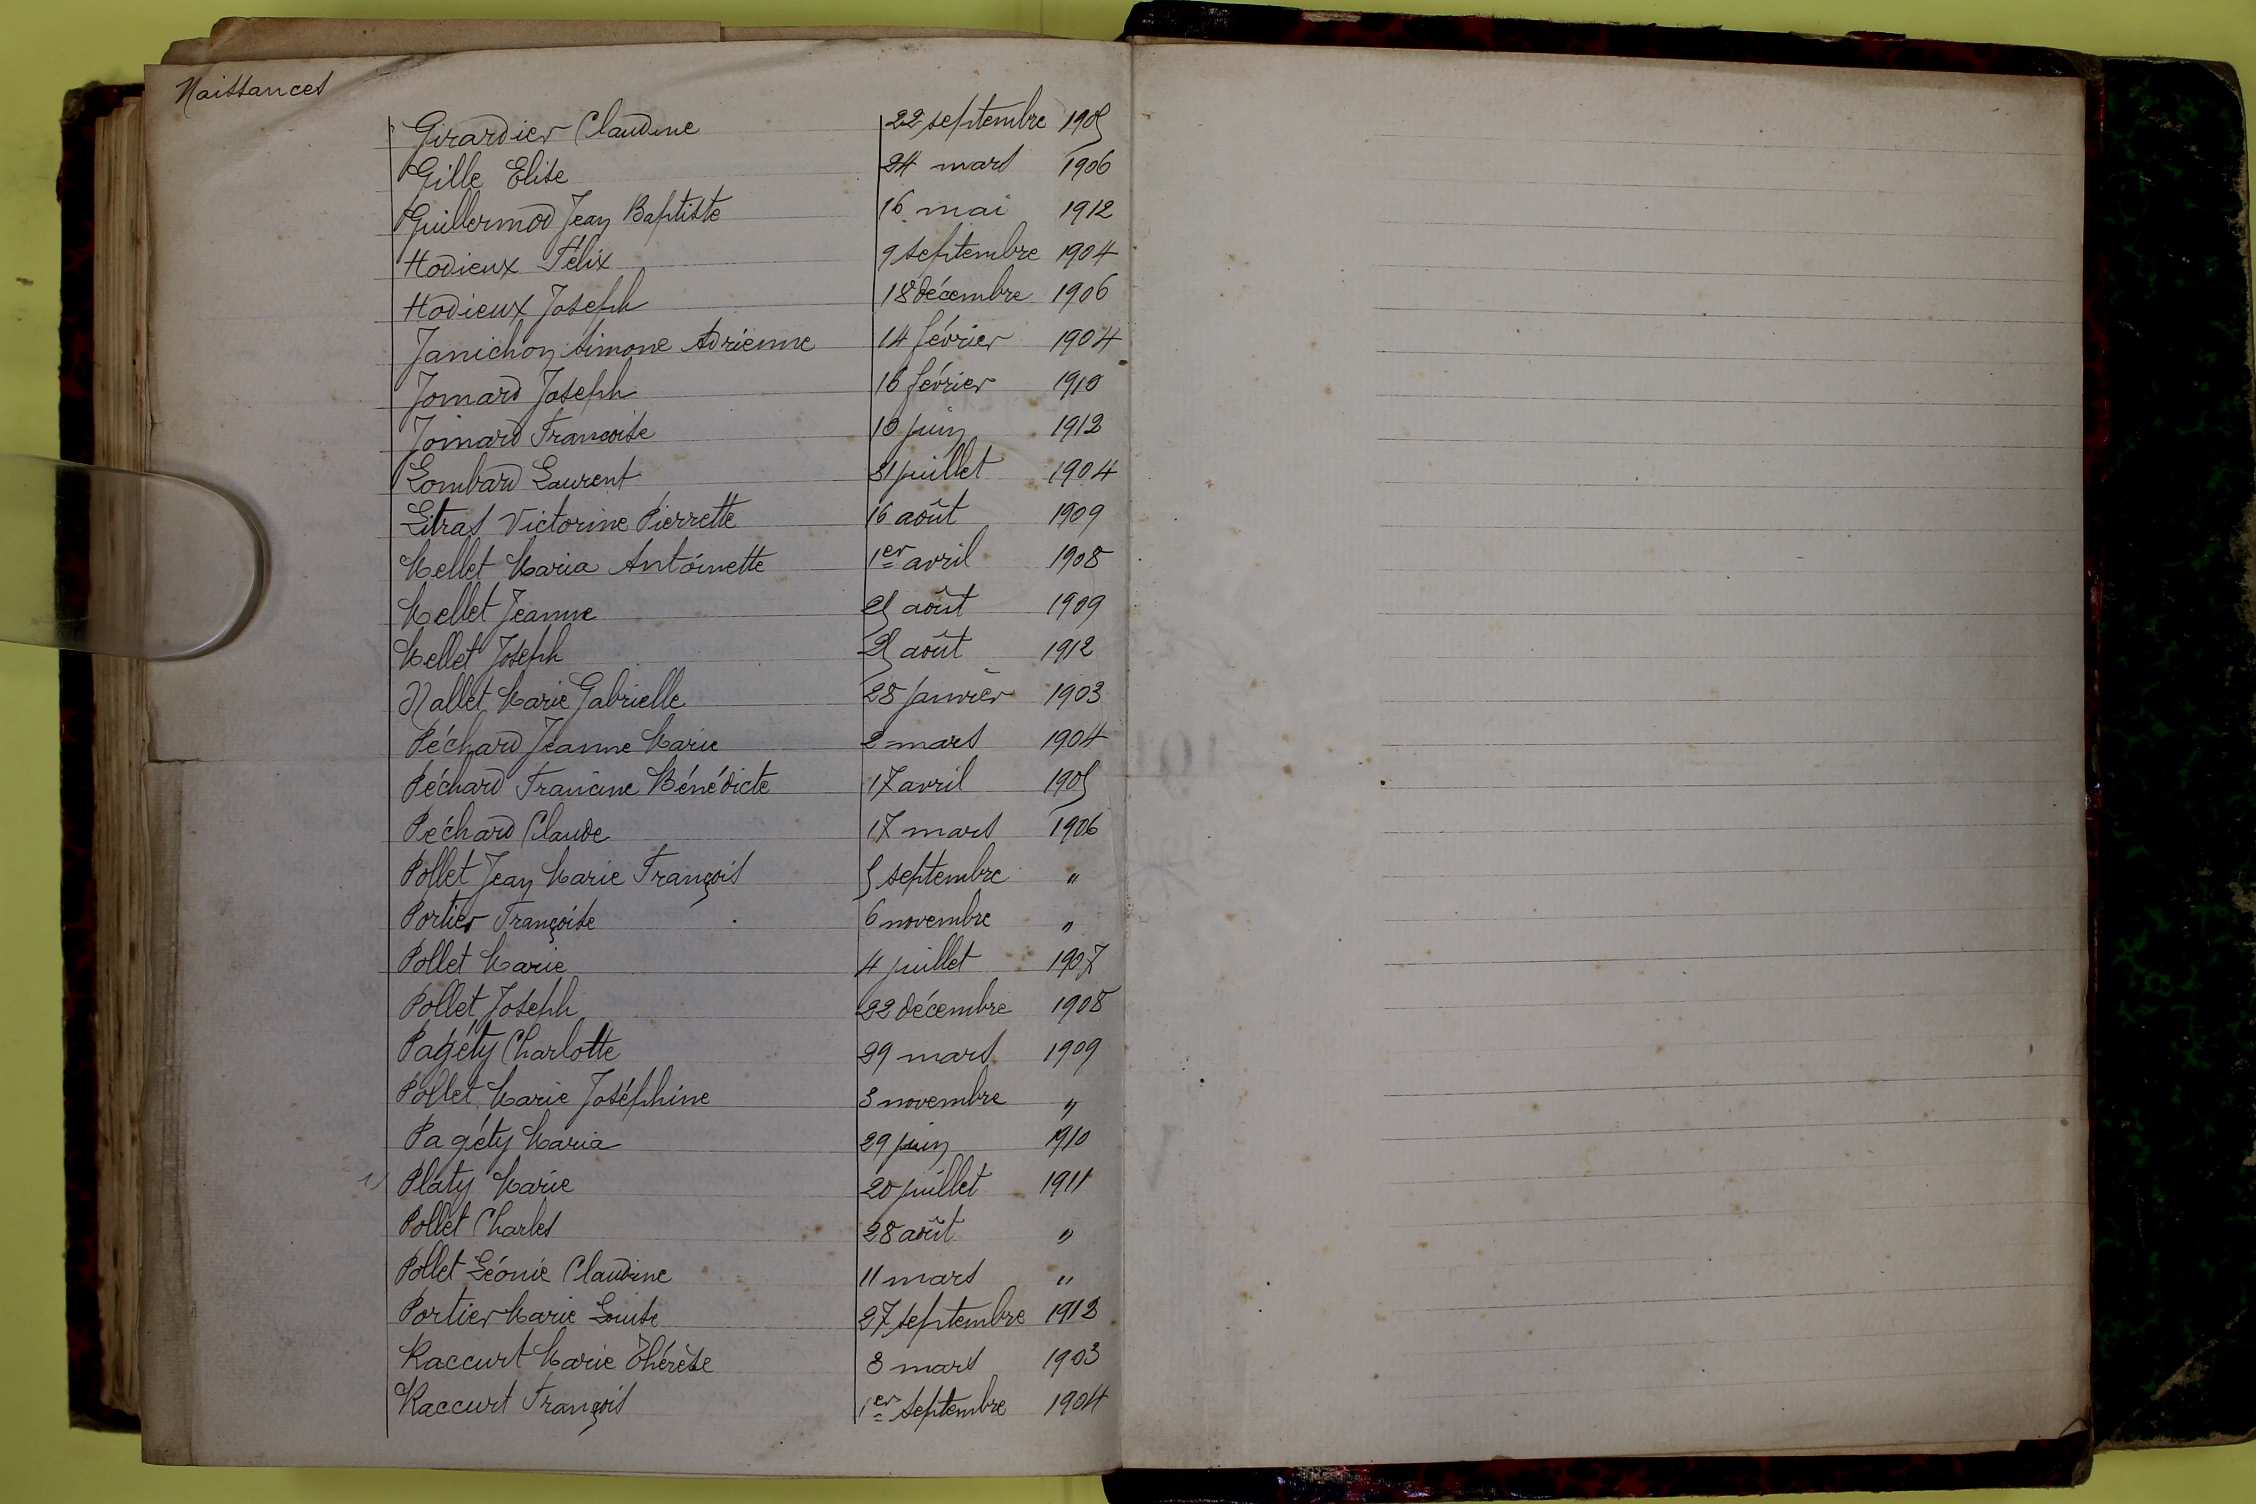 Naissances
Girardier Claudine 22 septembre 1905
Gille Elise 24 mars 1906
Guillermod Jean Baptiste 16 mai 1912
Hodieux Félix 9 septembre 1904
Hodieux Joseph 18 décembre 1906
Janichon Simone Adrienne 14 février 1904
Jomard Joseph 16 février 1910
Jomard Francoise 10 juin 1912
Lombard Laurent 31 juillet 1904
Litras Victorine Pierrette 16 août 1909
Mellet Maria Antoinette 1er avril 1908
Mellet Jeanne 25 août 1909
Mellet Joseph 25 août 1912
Nallet Marie Gabrielle 28 janvier 1903
Péchard Jeanne Marie 2 mars 1904
Péchard Francine Bénédicte 17 avril 1905
Péchard Claude 17 mars 1906
Pollet Jean Marie François 5 septembre "
Portier Françoise 6 novembre "
Pollet Marie 4 juillet 1907
Pollet Joseph 22 décembre 1908
Pagéty Charlotte 29 mars 1909
Pollet Marie Joséphine 3 novembre "
Pagéty Maria 29 juin 1910
Platy Marie 20 juillet 1911
Pollet Charles 28 août "
Pollet Léonie Claudine 11 mars "
Portier Marie Louise 27 septembre 1912
Raccurt Marie Thérèse 3 mars 1903
Raccurt François 1er septembre 1904